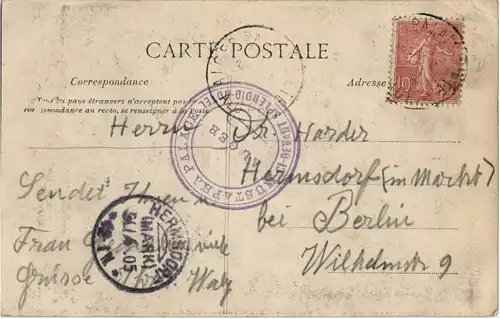 CARTE POSTALE
Correspondance
Adresse
Tous les pays étrangers n'acceptent pas la
correspondance au recto, se renseigner à la Poste
Herrn Dr. Harder
Hermsdorf (im Markt)
bei Berlin
Wilhelmstr 9
Sendet Ihnen u
Frau
Grüsse Walz
HERMSDORF
(MARK)
MUSTAPHA PALACE
SPLENDID-HOTEL
10